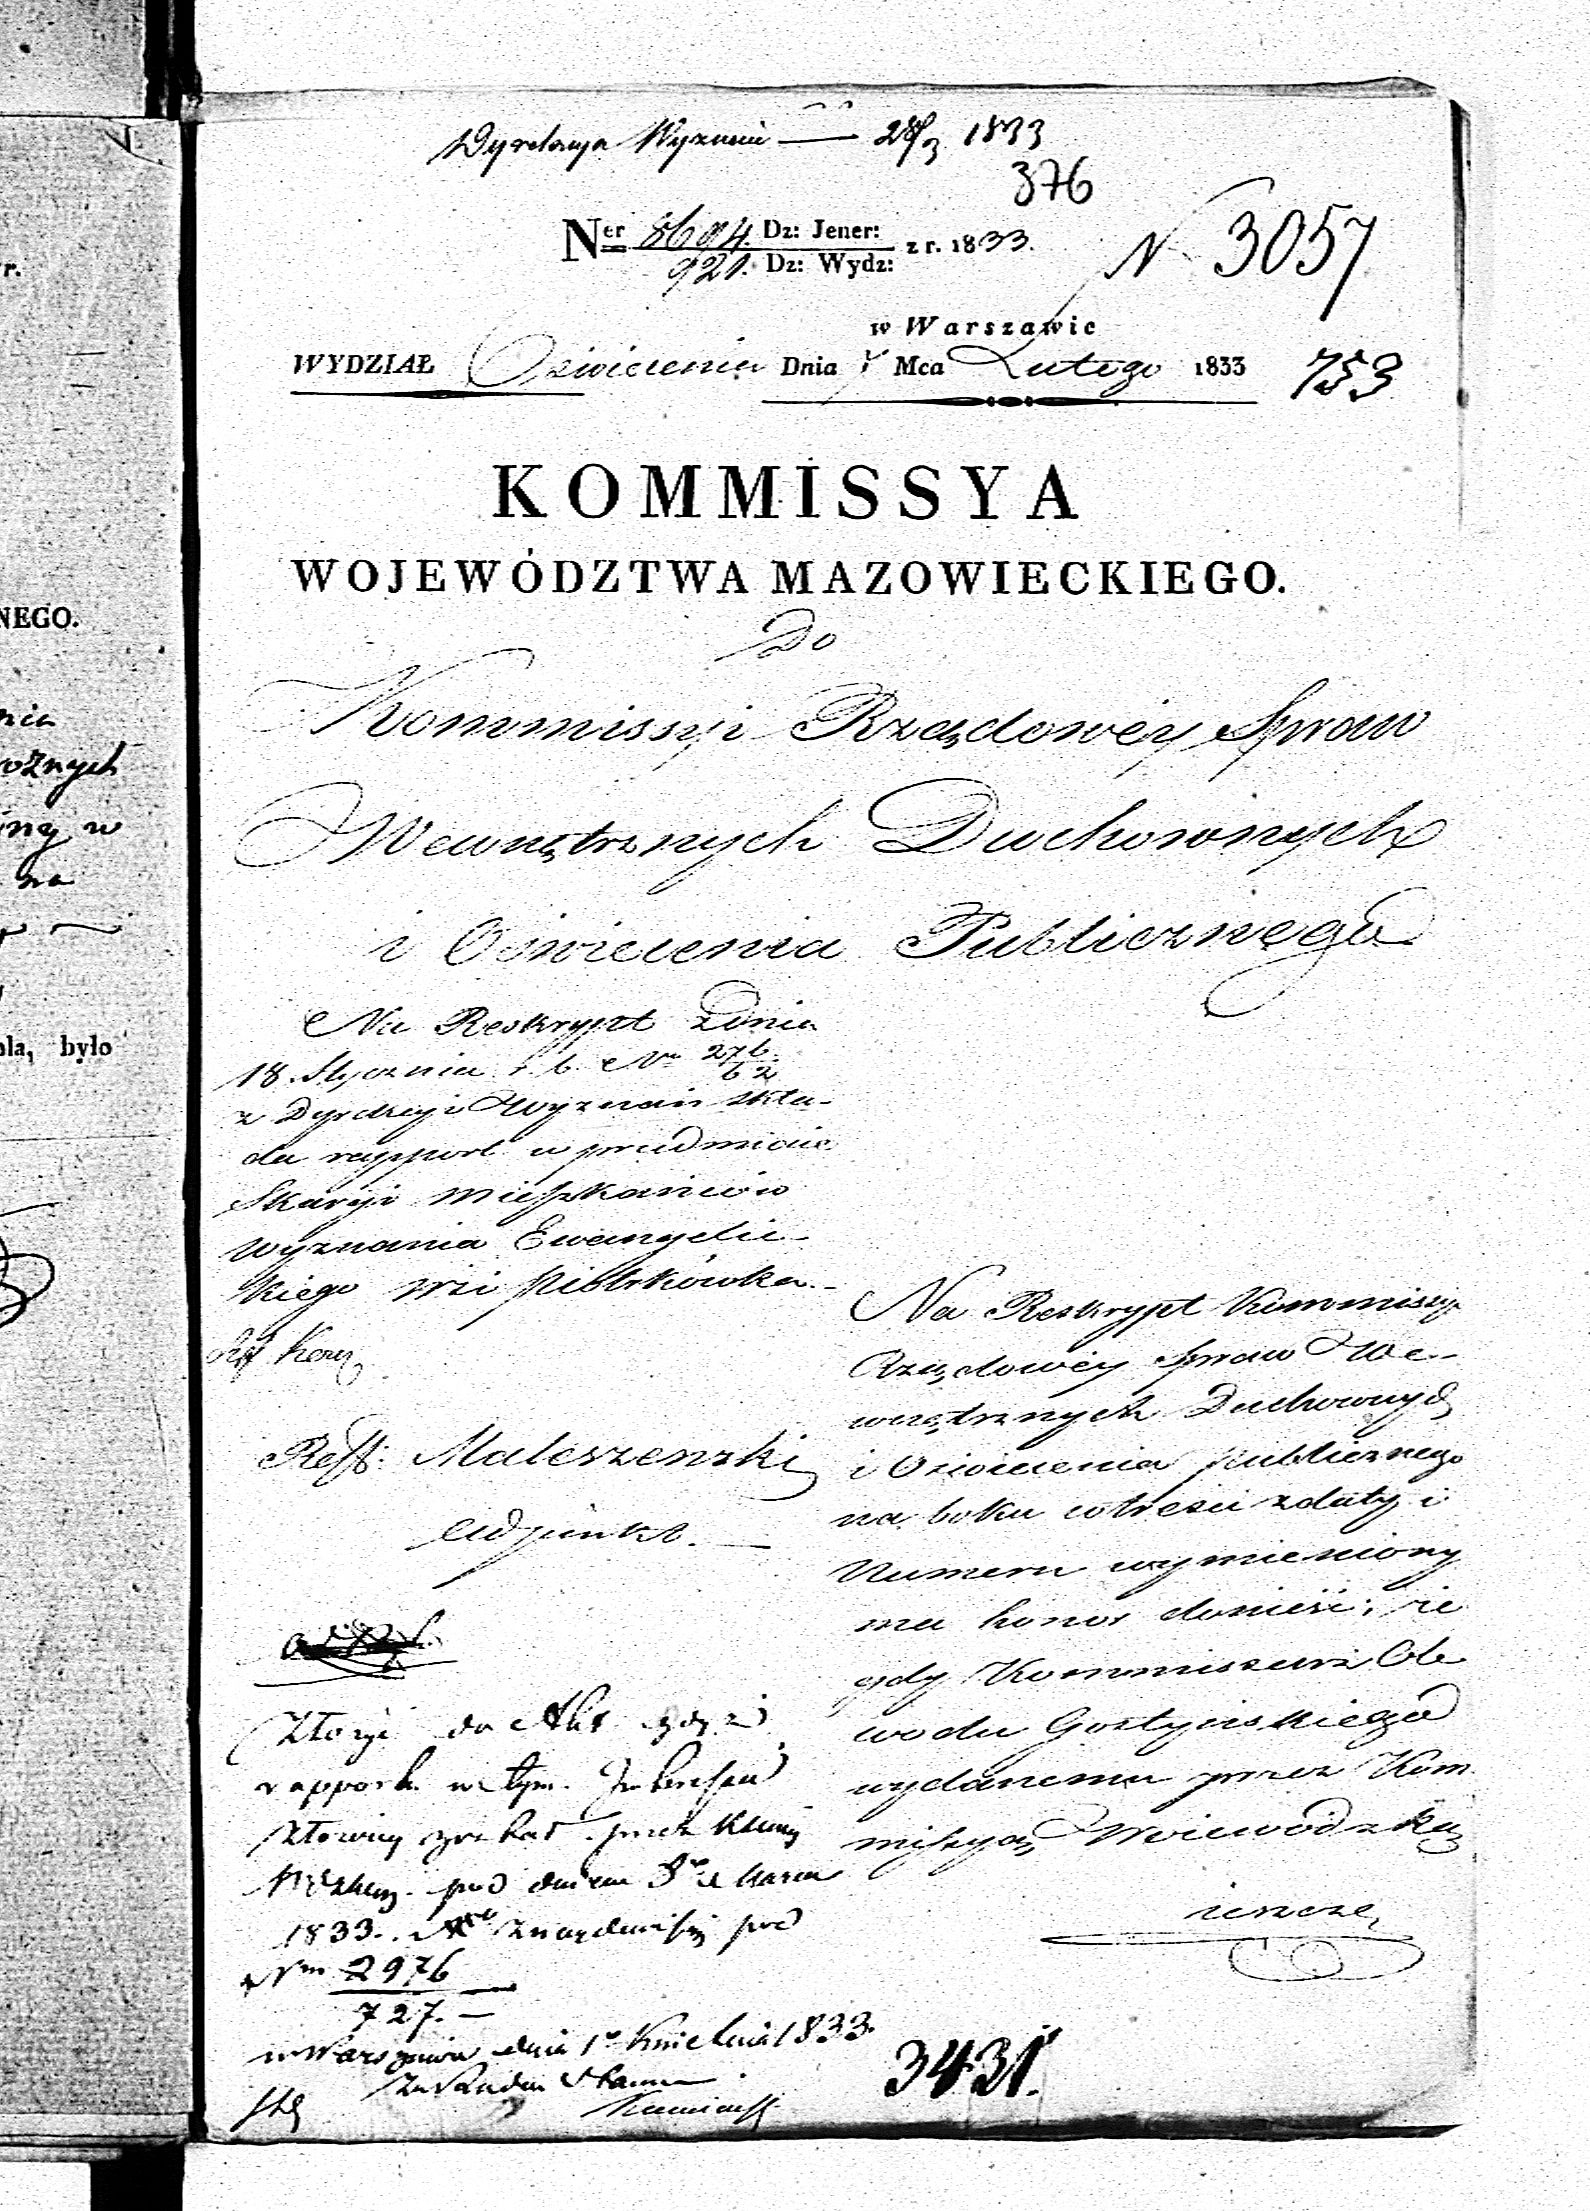 Dyrekcya Wyznań — 28/3 1833
376
Ner 8694. Dz: Jener: z r. 1833.
921. Dz: Wydz:
N 3057
w Warszawie
WYDZIAŁ Oświecenia Dnia 7 Mca Lutego 1833
753
KOMMISSYA
WOJEWÓDZTWA MAZOWIECKIEGO.
Do
Kommissyi Rządowéy Spraw
Wewnętrznych Duchownych
i Oświecenia Publicznego
Na Reskrypt z dnia
18. Stycznia r. b. Nro 276/62
z Dyrekcyi Wyznań skła-
da rapport w przedmiocie
Skargi mieszkańców
wyznania Ewangelic-
kiego wsi Piotrkówka.
Reff: Maleszewski
Adjunkt.
Złożyć do Akt gdyż
rapport w tym Interesie
złożony został przez Kommis.
pod dniem
1833. znayduie się pod
Nrm 2976
727.—
w Warszawie dnia 1o Kwietnia 1833.
Na Reskrypt Kommissyi
Rządowéy Spraw We-
wnętrznych Duchownych
i Oświecenia Publicznego
na boku w treści z daty i
Numeru wymieniony
ma honor donieść, że
gdy Kommissarz Ob-
wodu Gostyńskiego
wydanemu przez Kom-
missyą Woiewódzką
ieszcze
3431.
r.
NEGO.
nia
ożnych
w
na
ola, było